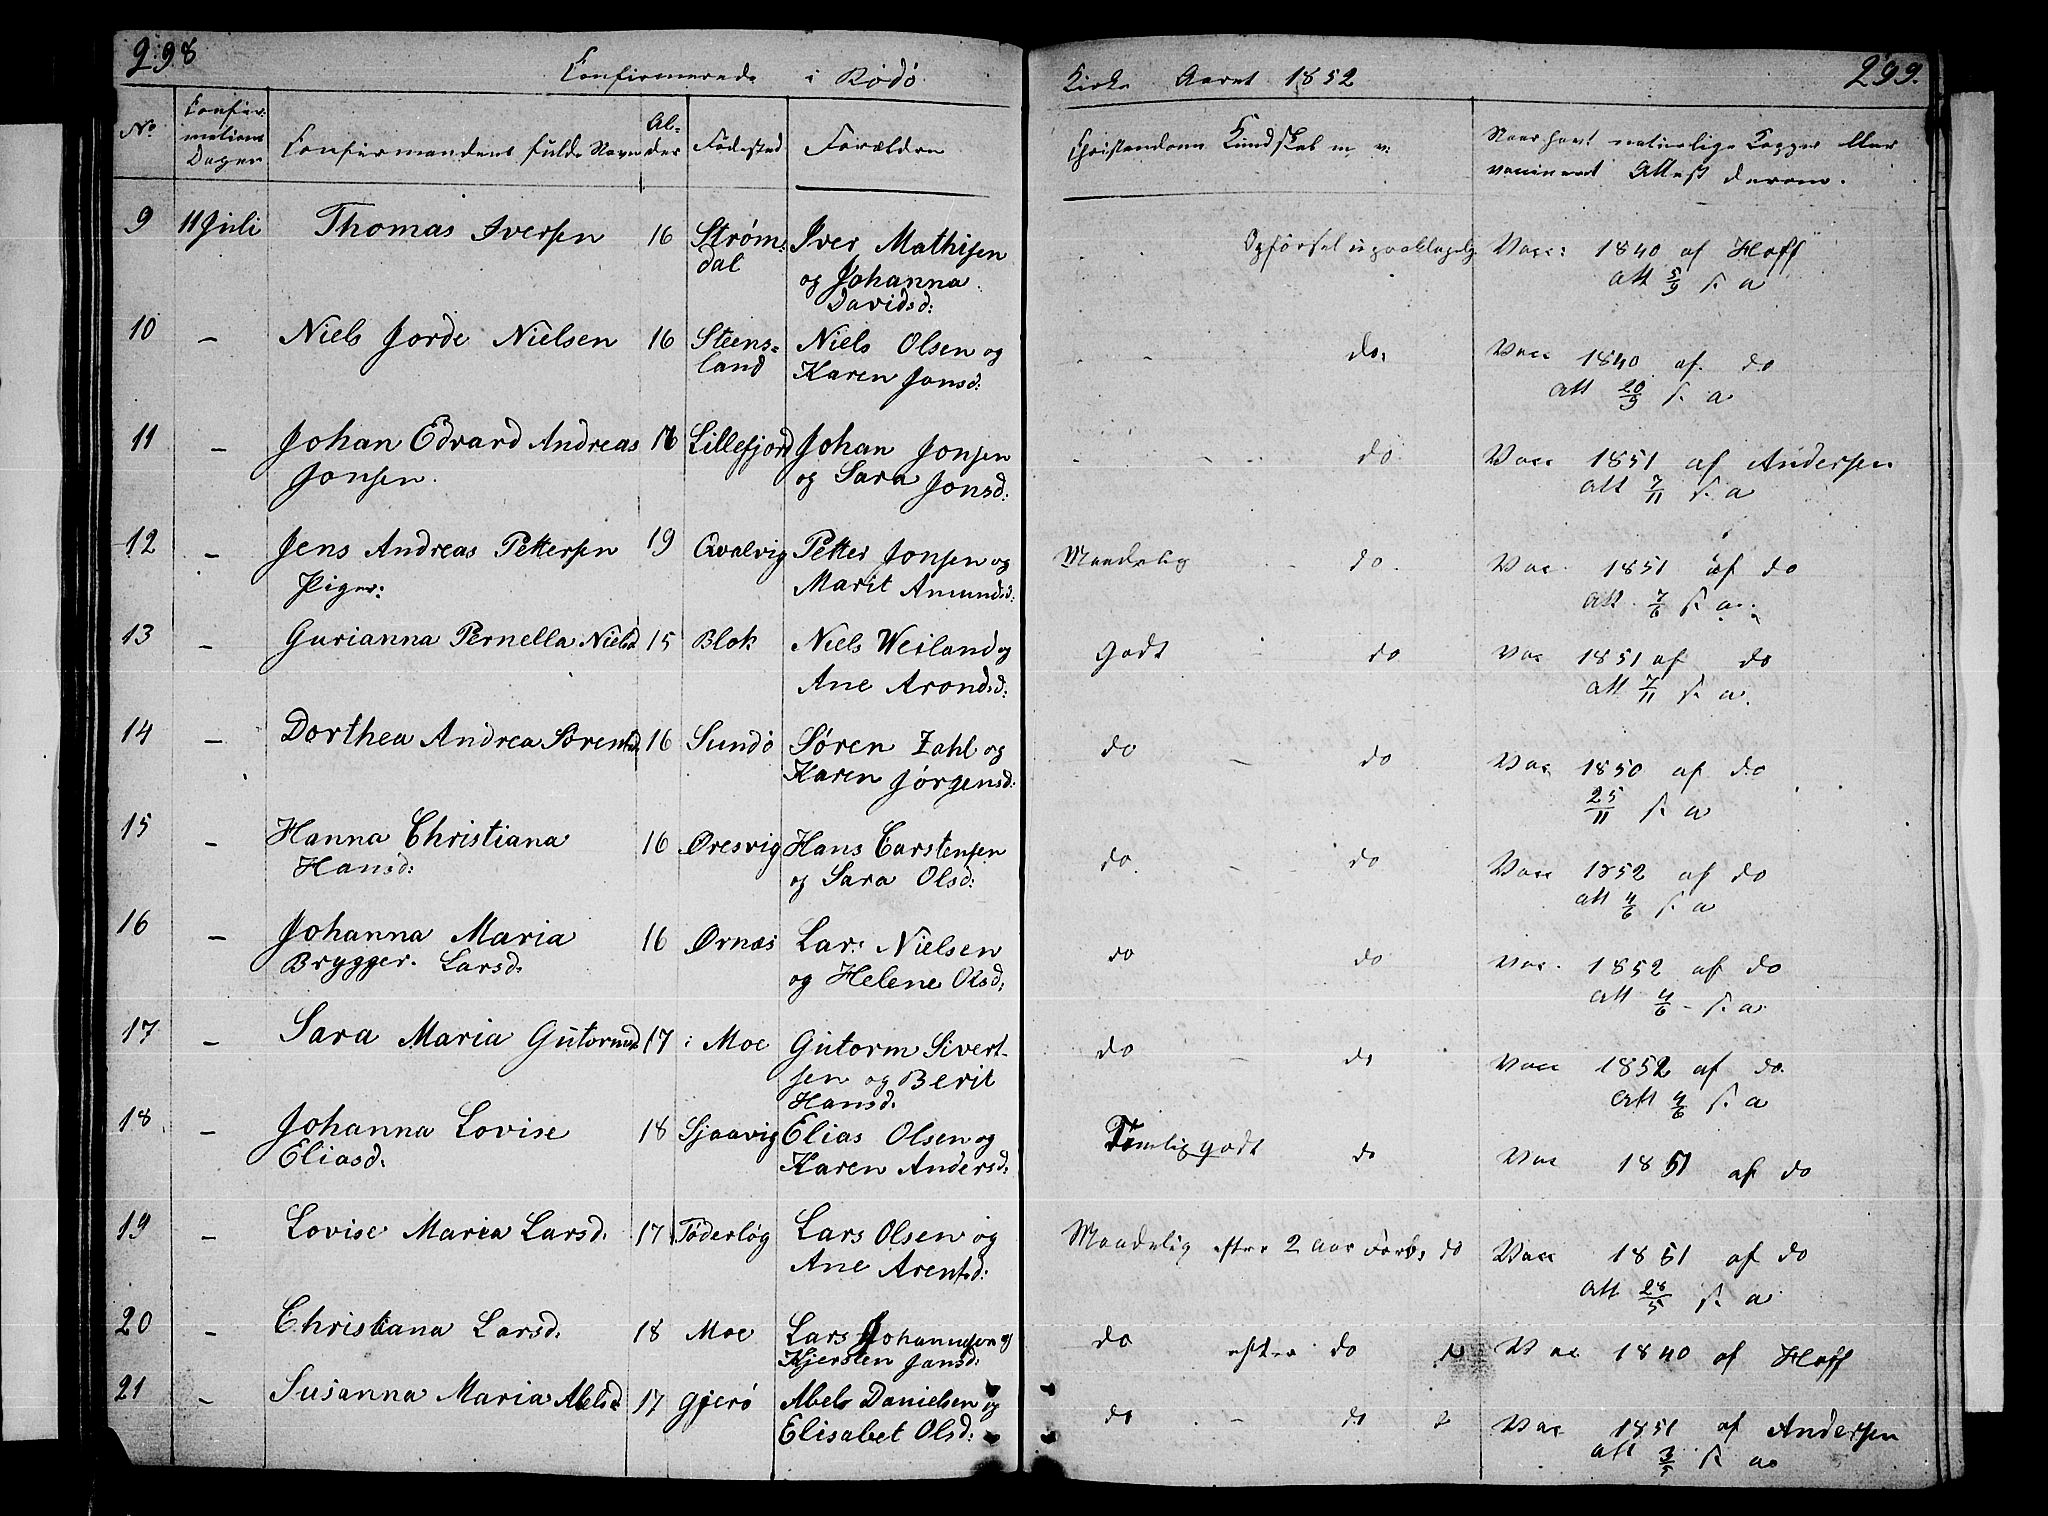 298
Confirmerede i Rødø
Kirke Aaret 1852
299.
No
Confir-
mations
Dagen
Confirmandens fulde Navn
Al-
der
Fødested
Forældre
Christendoms Kundskab m. v.
Naar havt naturlige Kopper eller
vaccineret Attest derom.
9 11 Juli Thomas Iversen 16 Strøm-
dal
Iver Mathisen
og Johanna
Davidsd:
Opførsel upaaklagelig
Vacc: 1840 af Hoff
att 5/9 s. a
10 – Niels Jorde Nielsen 16 Steens-
land
Niels Olsen og
Karen Jonsd:
do:
Vacc 1840 af do
att 20/9 s. a
11 – Johan Edvard Andreas 16 Lillefjord
Jonsen.
Johan Jonsen
og Sara Jonsd:
do
Vacc 1851 af Andersen
att 7/11 s. a
12 – Jens Andreas Pettersen 19 Qvalvig
Petter Jonsen og
Marit Amundsd:
Maadelig do.
Vac. 1851 af do
att. 7/6 s. a.
Piger:
13 – Gurianna Pernella Nielsd 15 Blok
Niels Weiland og
Ane Arondsd:
Godt do
Vac 1851 af do
att 7/11 s. a.
14 – Dorthea Andrea Sørensd 16 Sundø
Søren Zahl og
Karen Jørgensd:
do – do
Vac 1850 af do
25/11 s. a
15 – Hanna Christiana 16 Øresvig
Hansd:
Hans Carstensen
og Sara Olsd:
do. – do
Vacc 1852 af do
att 4/6 s. a
16 – Johanna Maria 16 Ørnæs
Brygger. Larsd.
Lars Nielsen
og Helene Olsd.
do do
Vac. 1852 af do
att 4/6 – s. a
17 – Sara Maria Gutormsd 17 Moe
Gutorm Sivert-
sen og Berit
Hansd.
do – do
Vacc 1852 af do.
att 4/6 s. a
18 – Johanna Lovise 18 Sjaavig
Eliasd.
Elias Olsen og
Karen Andersd:
Temlig godt do
Vac 1851 af do
19 – Lovise Maria Larsd. 17 Töderløg
Lars Olsen og
Ane Arentsd:
Maadelig efter 2 Aar Forb: do
Vacc 1851 af do
att 28/5 s. a
20 – Christiana Larsd. 18 Moe
Lars Johannesen og
Kjersten Jansd:
do efter do do
Vac 1840 af Hoff
21 – Susanna Maria Abelsd 17 Gjerø
Abels Danielsen og
Elisabet Olsd:
do. – do
Vac 1851 af Andersen
att 3/5 s. a.